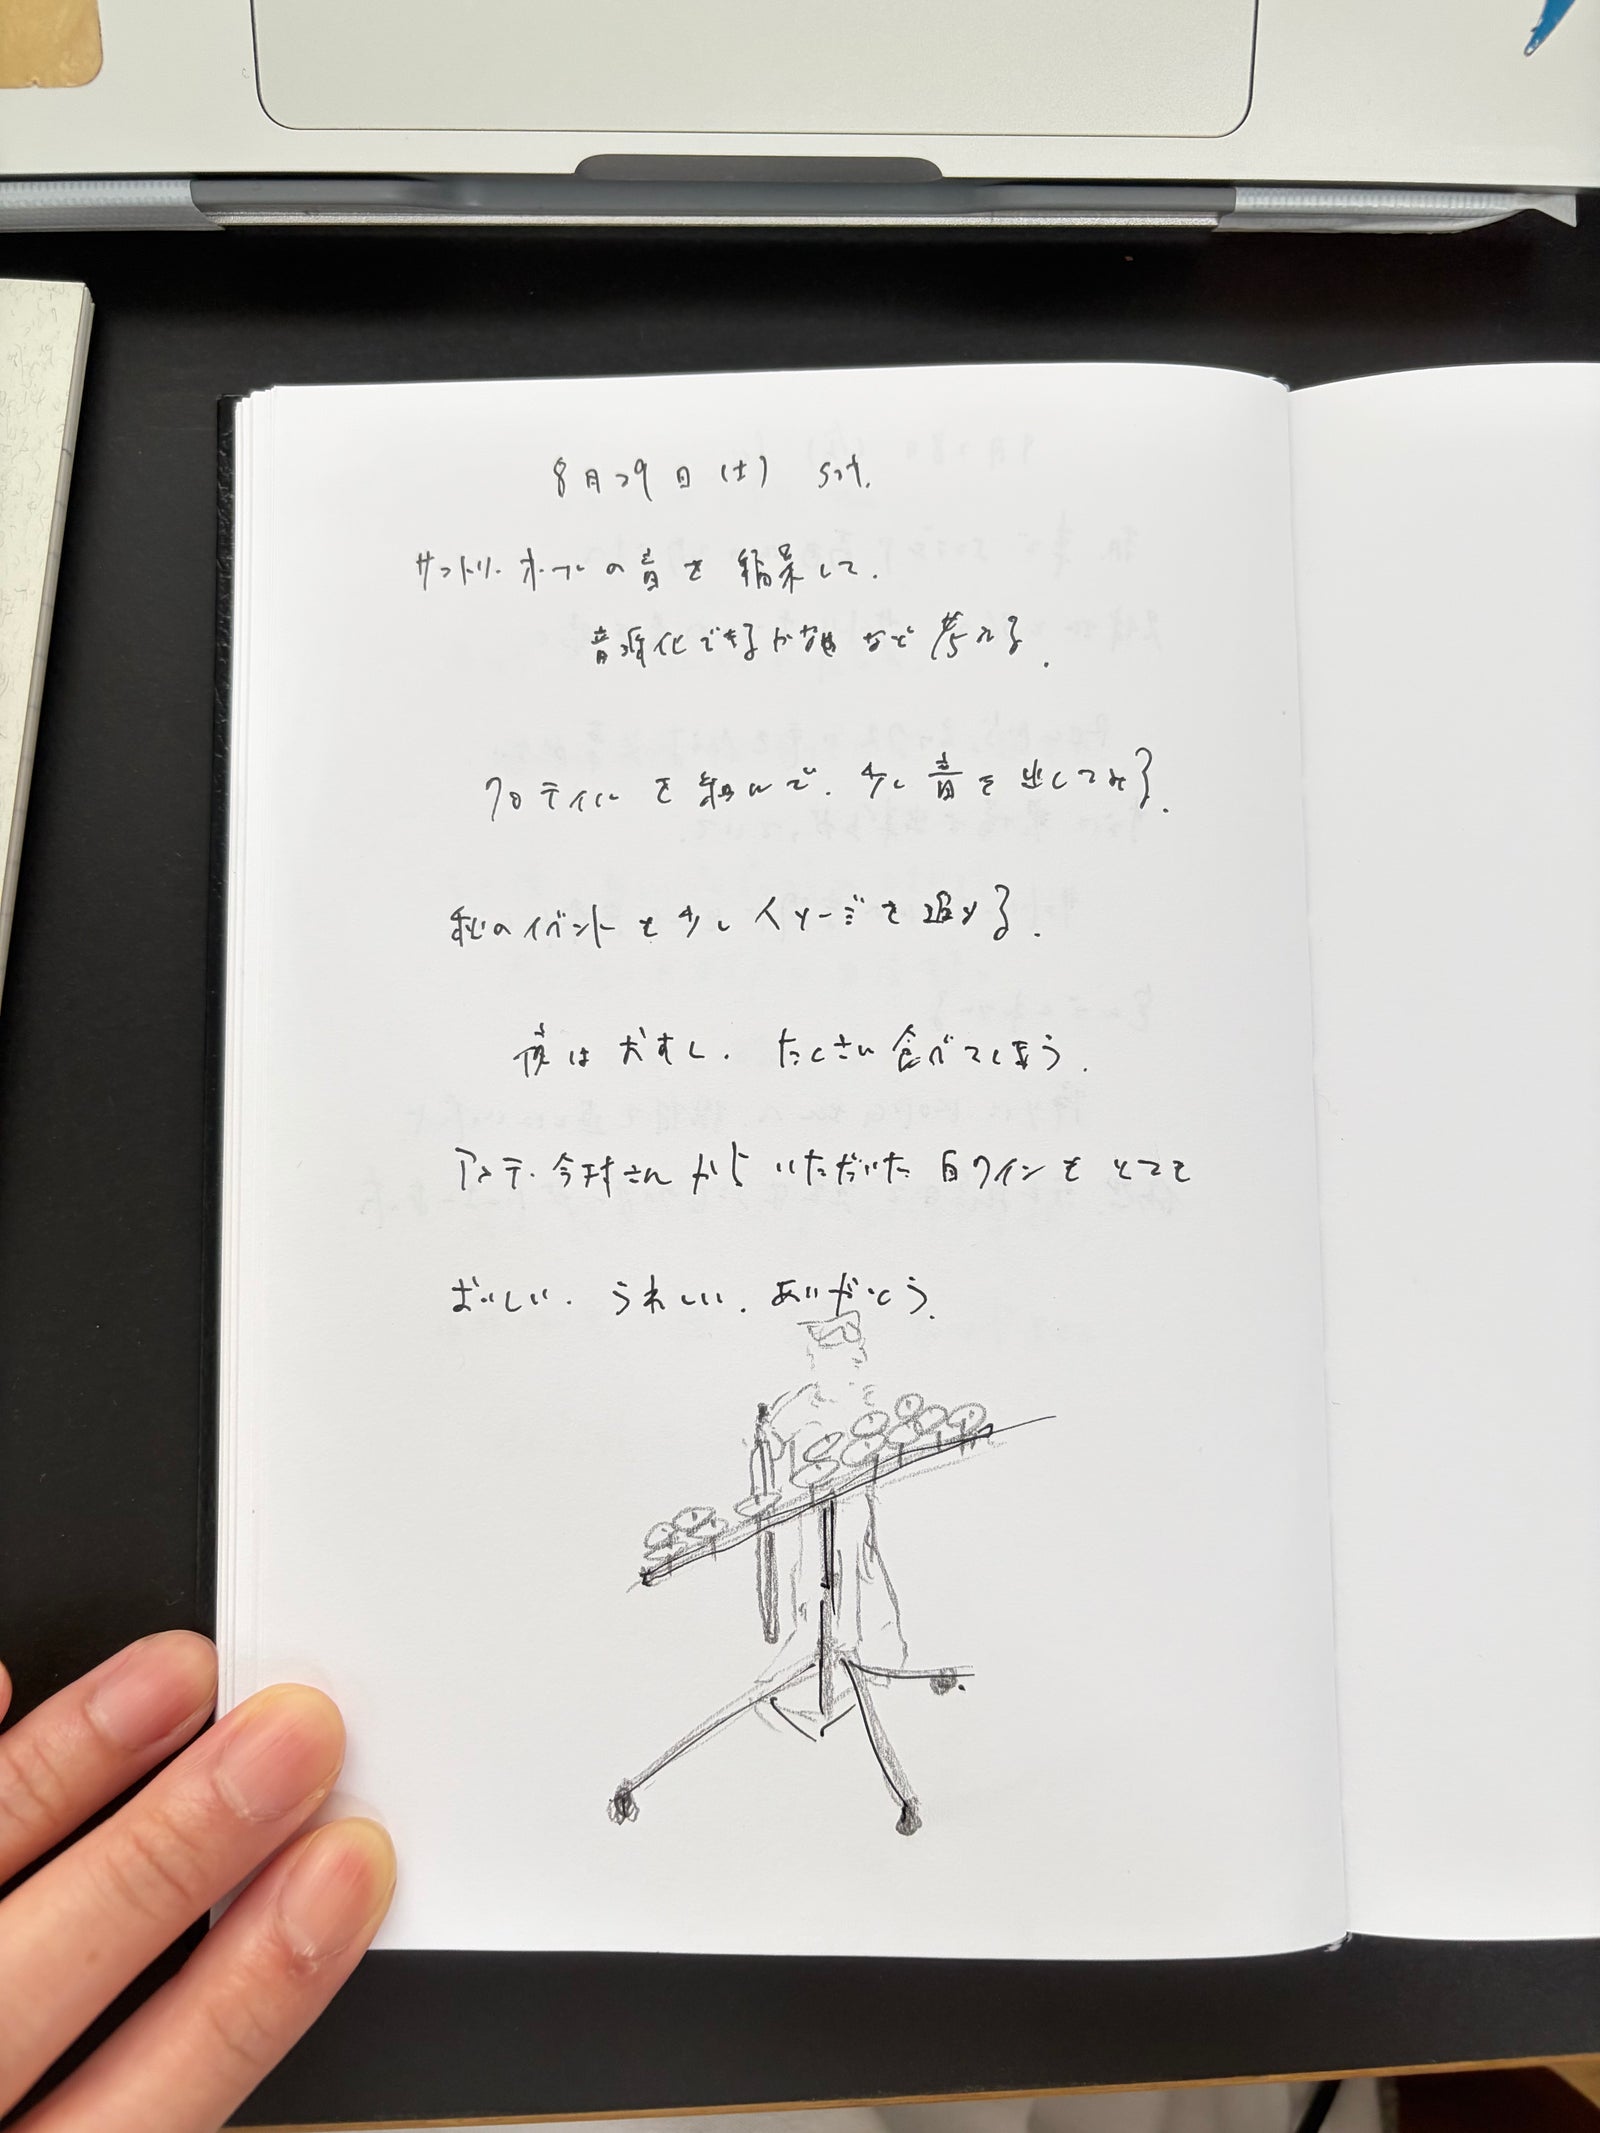 8月29日(土) sat.
サントリーホールの音を編集して、
音源化できるかな など考える。
クロテイルを組んで、少し音を出してみる。
秋のイベントも少しイメージを進める。
夜はおすし。たくさん食べてしまう。
今村さんからいただいた白ワインもとても
おいしい。うれしい。ありがとう。